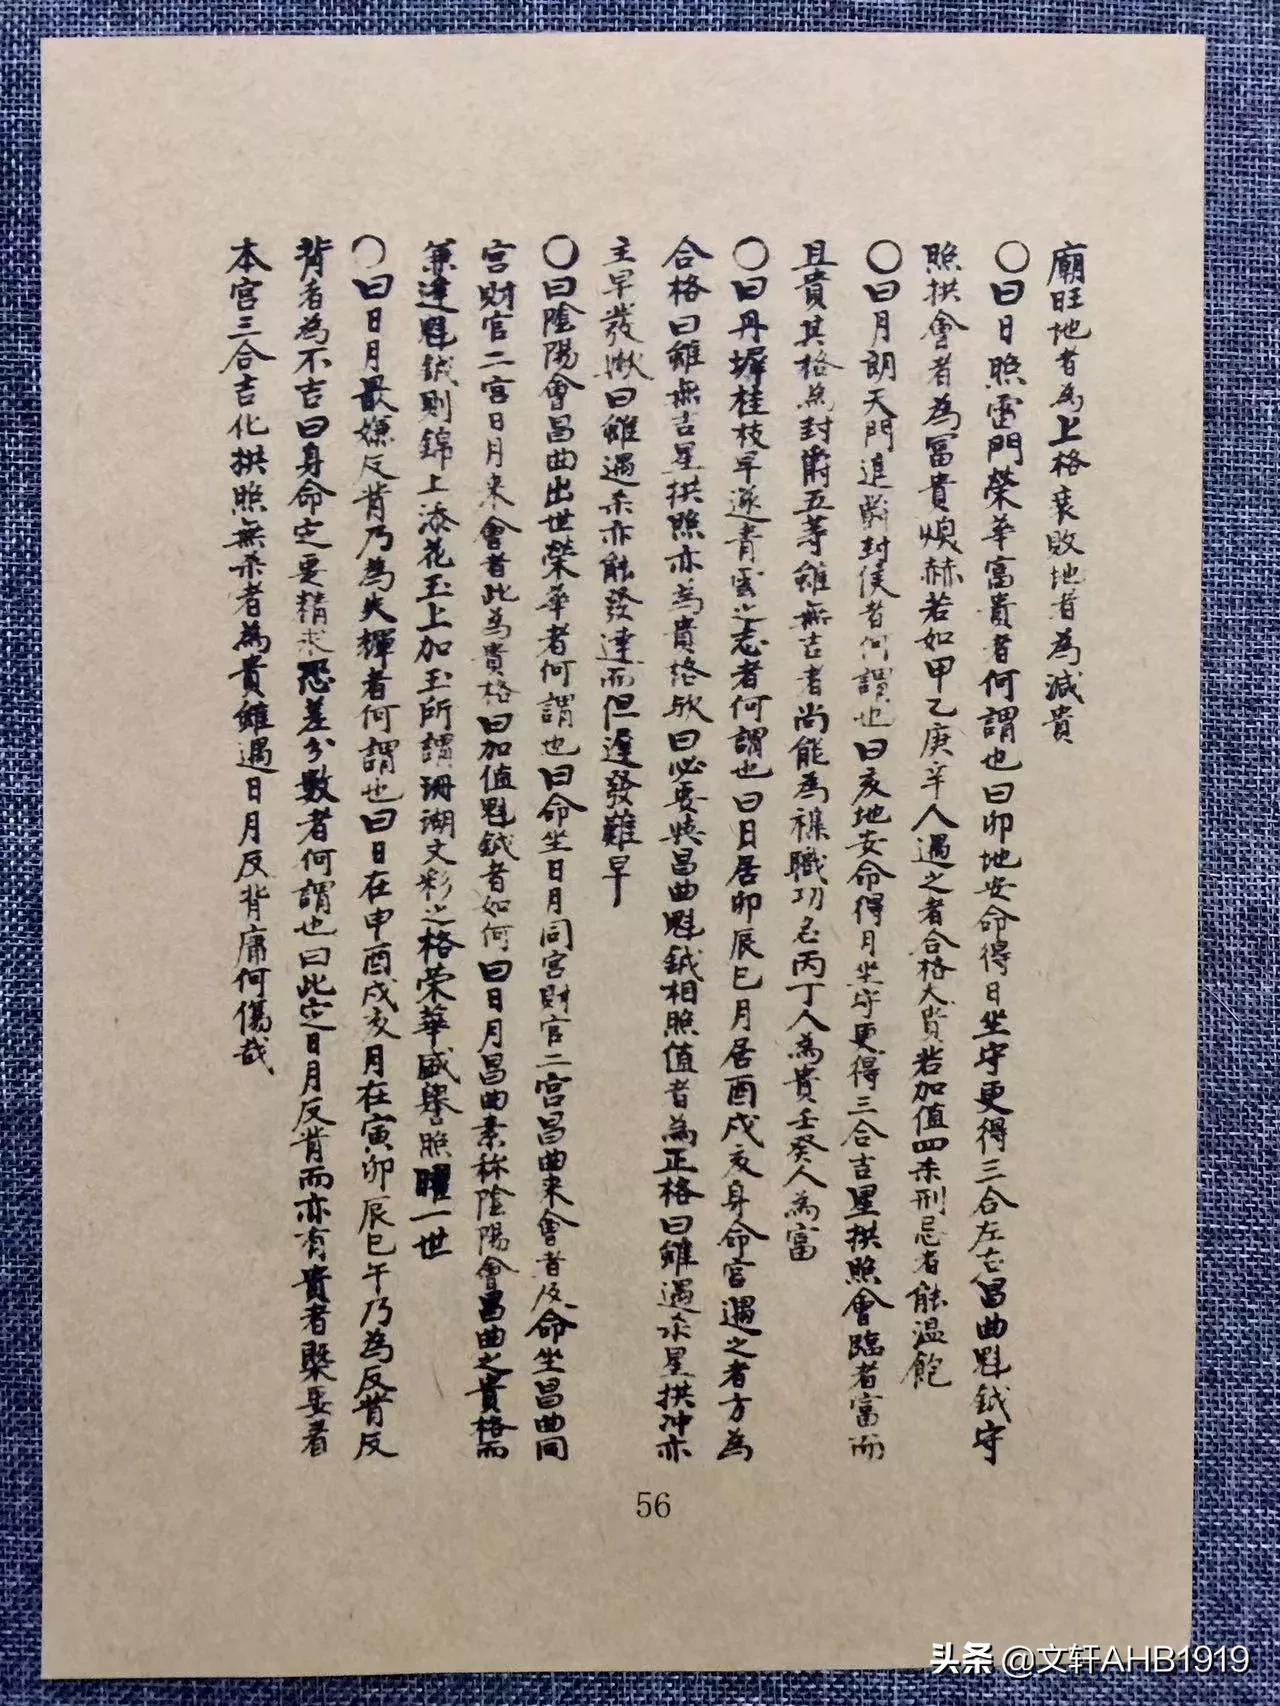 廟旺地者為上格衰敗地者為減貴
〇曰日照雷門榮華富貴者何謂也曰卯地安命得日坐守更得三合左右昌曲魁鉞守
照拱會者為富貴烜赫若如甲乙庚辛人遇之者合格大貴若加值四杀刑忌者能溫飽
〇曰月朗天門進爵封侯者何謂也曰亥地安命得月坐守更得三合吉星拱照會臨者富而
且貴其格為封爵五等雖無吉者尚能為襍職功名丙丁人為貴壬癸人為富
〇曰丹墀桂枝早遂青雲之志者何謂也曰日居卯辰巳月居酉戌亥身命宮遇之者方為
合格曰雖無吉星拱照亦為貴格欤曰必要姎昌曲魁鉞相照值者為正格曰雖遇杀星拱冲亦
主早發欤曰雖遇杀亦能發達而但遲發難早
〇曰陰陽會昌曲出世榮華者何謂也曰命坐日月同宮財官二宮昌曲来會者及命坐昌曲同
宮財官二宮日月来會者此為貴格曰加值魁鉞者如何曰日月昌曲素称陰陽會昌曲之貴格而
兼逢魁鉞則錦上添花玉上加玉所謂珊瑚文彩之格荣華盛譽照耀一世
〇曰日月最嫌反背乃為失輝者何謂也曰日在申酉戌亥月在寅卯辰巳午乃為反背反
背者為不吉曰身命定要精求恐差分數者何謂也曰此定日月反背而亦有貴者槩要看
本宮三合吉化拱照無杀者為貴雖遇日月反背庸何傷哉
56
头条 @文轩AHB1919